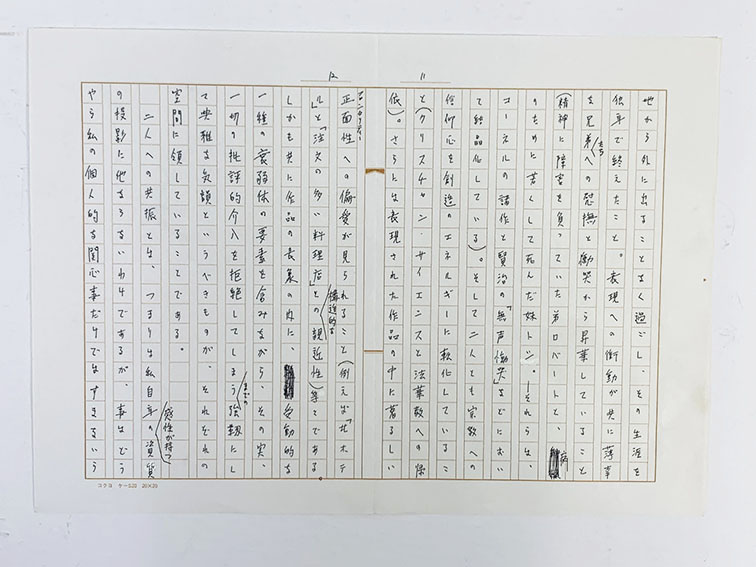 11
地から外に出ることなく過ごし、その生涯を
独身で終えたこと。表現への衝動が共に薄幸
な兄弟たちへの慰撫と慟哭から昇華していること
(精神に障害を負っていた弟ロバートと、病
のために若くして死んだ妹トシ。―それらは、
コーネルの諸作と賢治の「無声慟哭」などにおい
て結晶化している)。そして二人とも宗教への
信仰心を創造のエネルギーに転化しているこ
と(クリスチャン・サイエンスと法華教への帰
依)。さらには表現された作品の中に著るしい
12
フロンタリティ
正面性への偏愛が見られること(例えば「ホテ
ル」と「注文の多い料理店」との構造的な親近性)等々である。
しかも共に作品の表象の内に、受動的な
一種の衰弱体の要素を含みながら、その実、
一切の批評的介入を拒絶してしまうまでの強靭にし
て典雅なというべきものが、それぞれの
空間に領していることである。
二人への共振とは、つまりは私自身の感性が持つ資質
の投影に他ならないわけであるが、事はどう
やら私の個人的な関心事だけではすまないよう
コクヨ ケー520 20×20